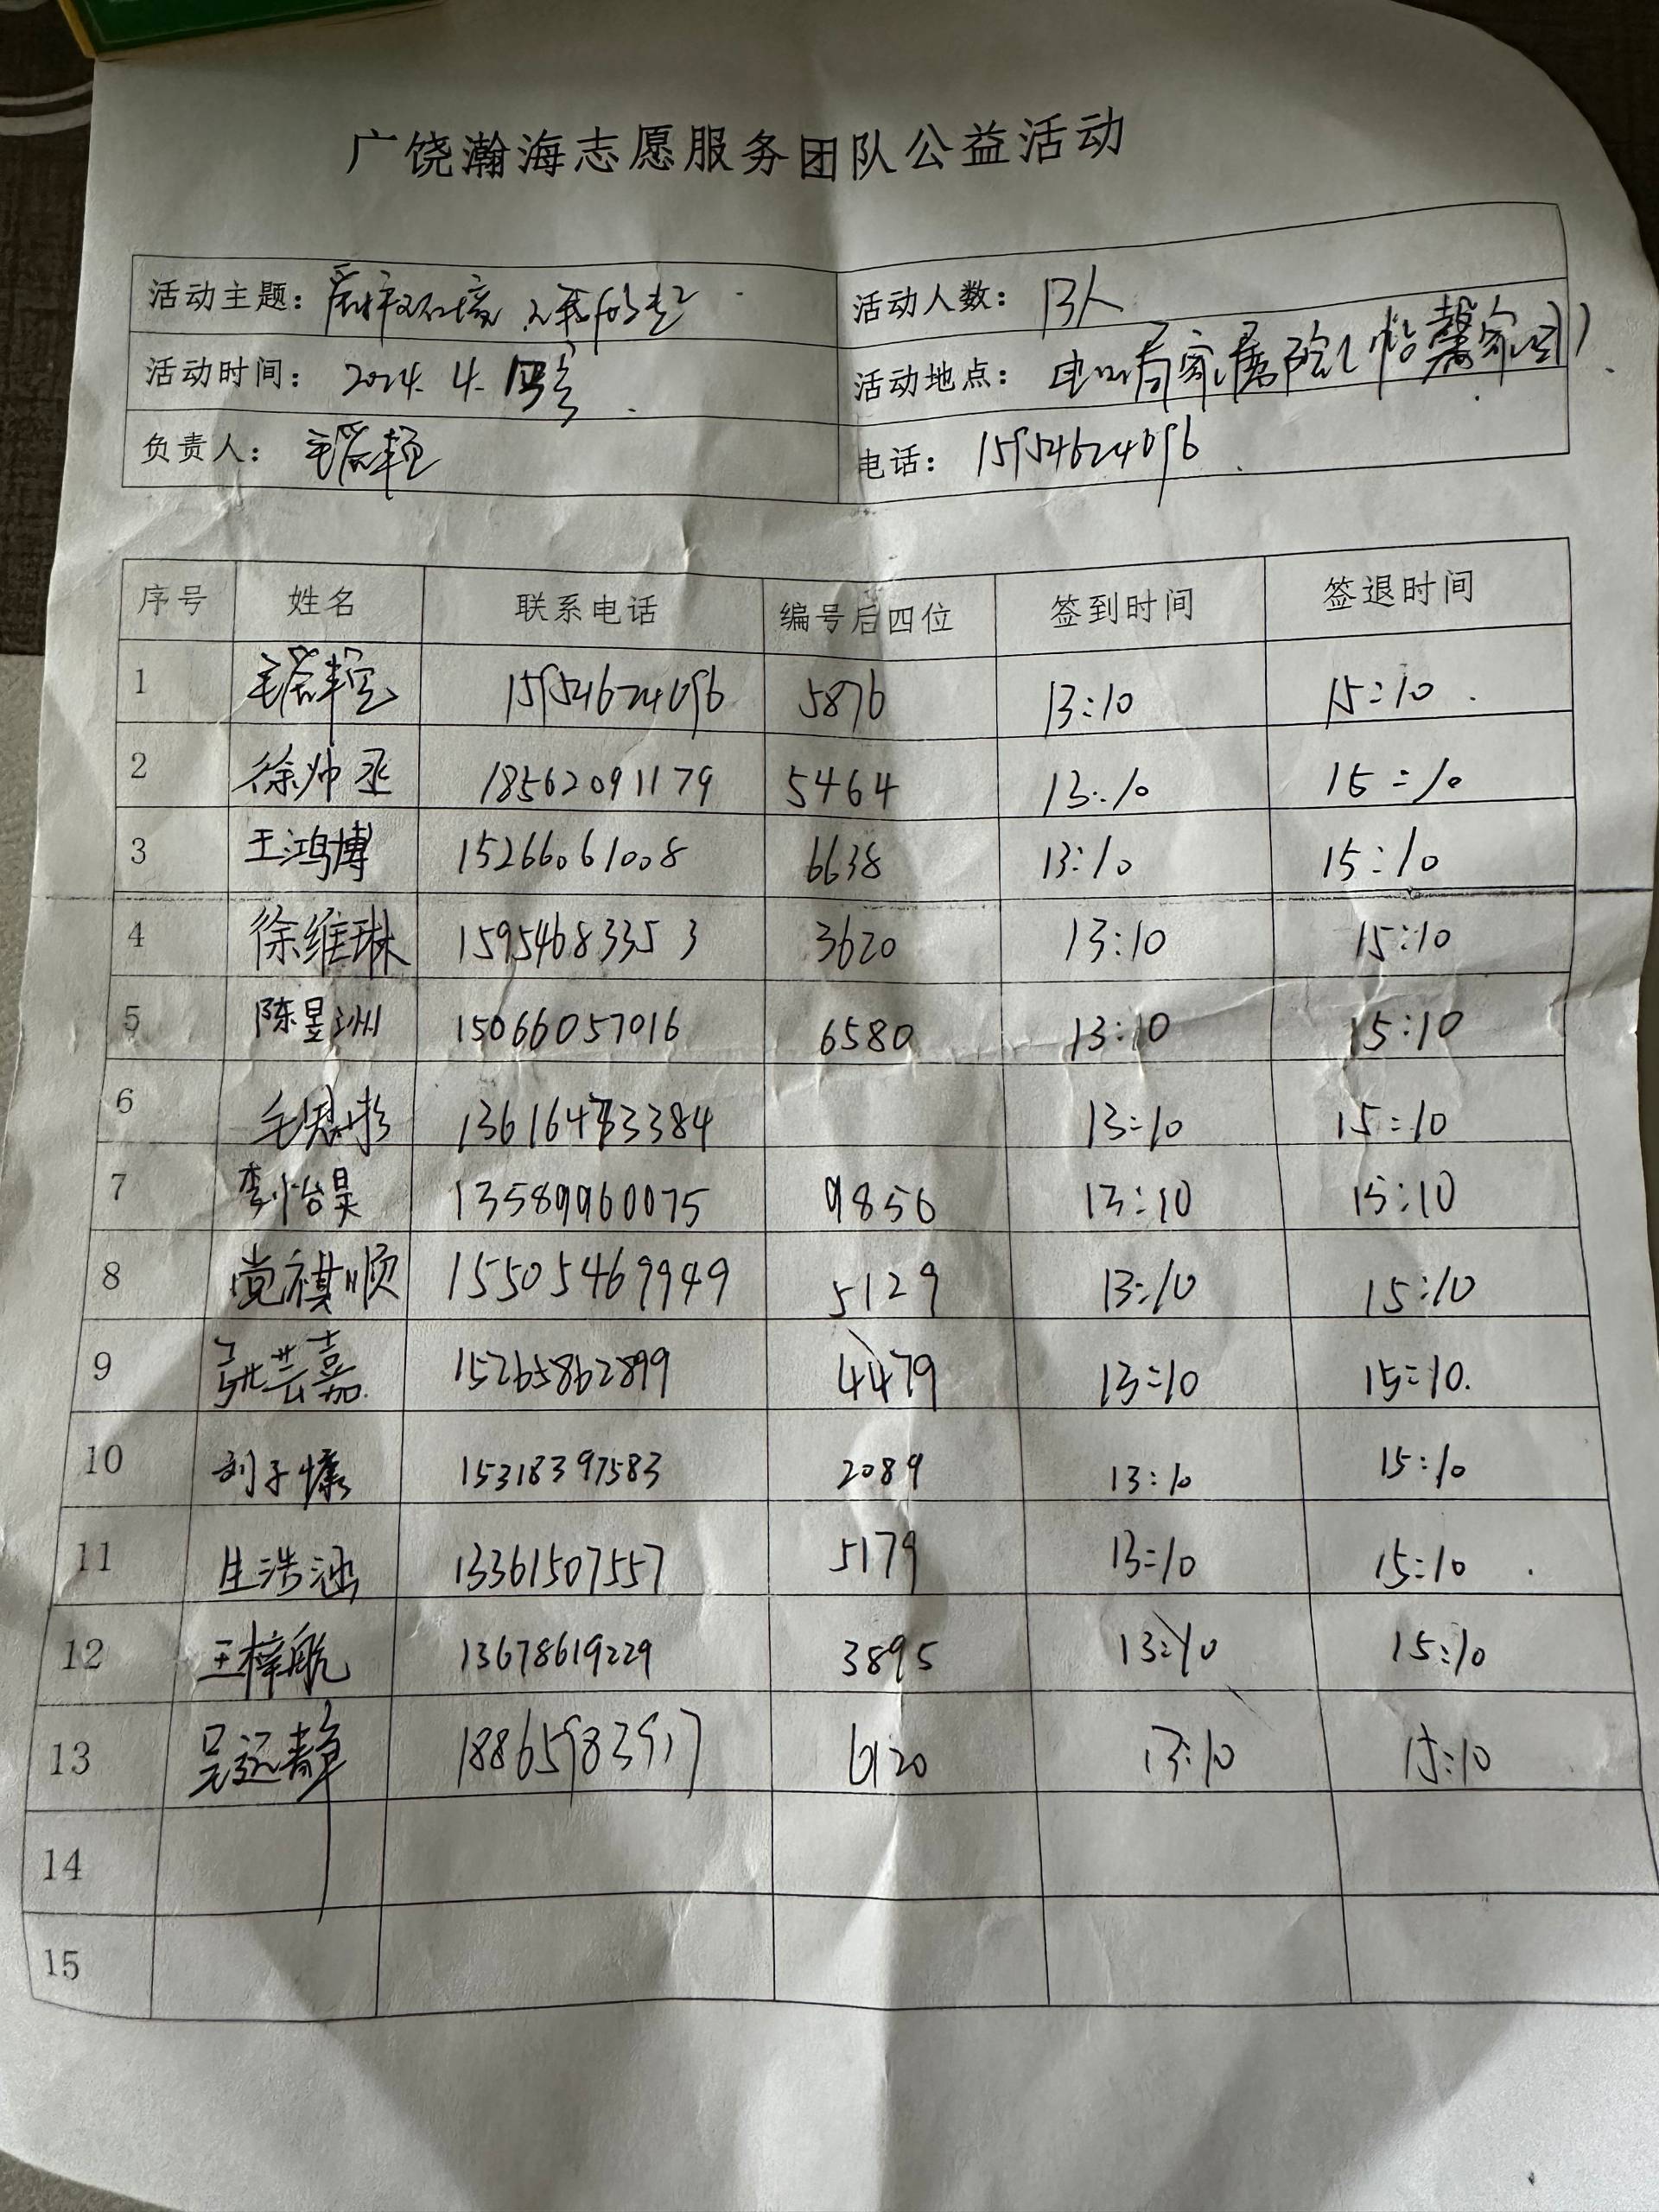 广饶瀚海志愿服务团队公益活动
活动主题：爱护环境 从我做起 活动人数：13人
活动时间：2024.4. 号 活动地点：电业局家属院（怡馨家园）
负责人： 电话：15954624096
序号 姓名 联系电话 编号后四位 签到时间 签退时间
1 15954624096 5876 13:10 15:10
2 徐帅丞 18562091179 5464 13:10 15:10
3 王鸿博 15266061008 6638 13:10 15:10
4 徐维琳 15954683353 3620 13:10 15:10
5 陈昱洲 15066057016 6580 13:10 15:10
6 13:10 15:10
7 李怡昊 13589960075 9856 13:10 15:10
8 党祺顺 15505469949 5129 13:10 15:10
9 张芸嘉 15265862899 4479 13:10 15:10
10 刘子 15318397583 2089 13:10 15:10
11 生浩涵 13361507557 5179 13:10 15:10
12 王梓航 13678619229 3895 13:10 15:10
13 吴远 18865983917 6120 13:10 15:10
14
15